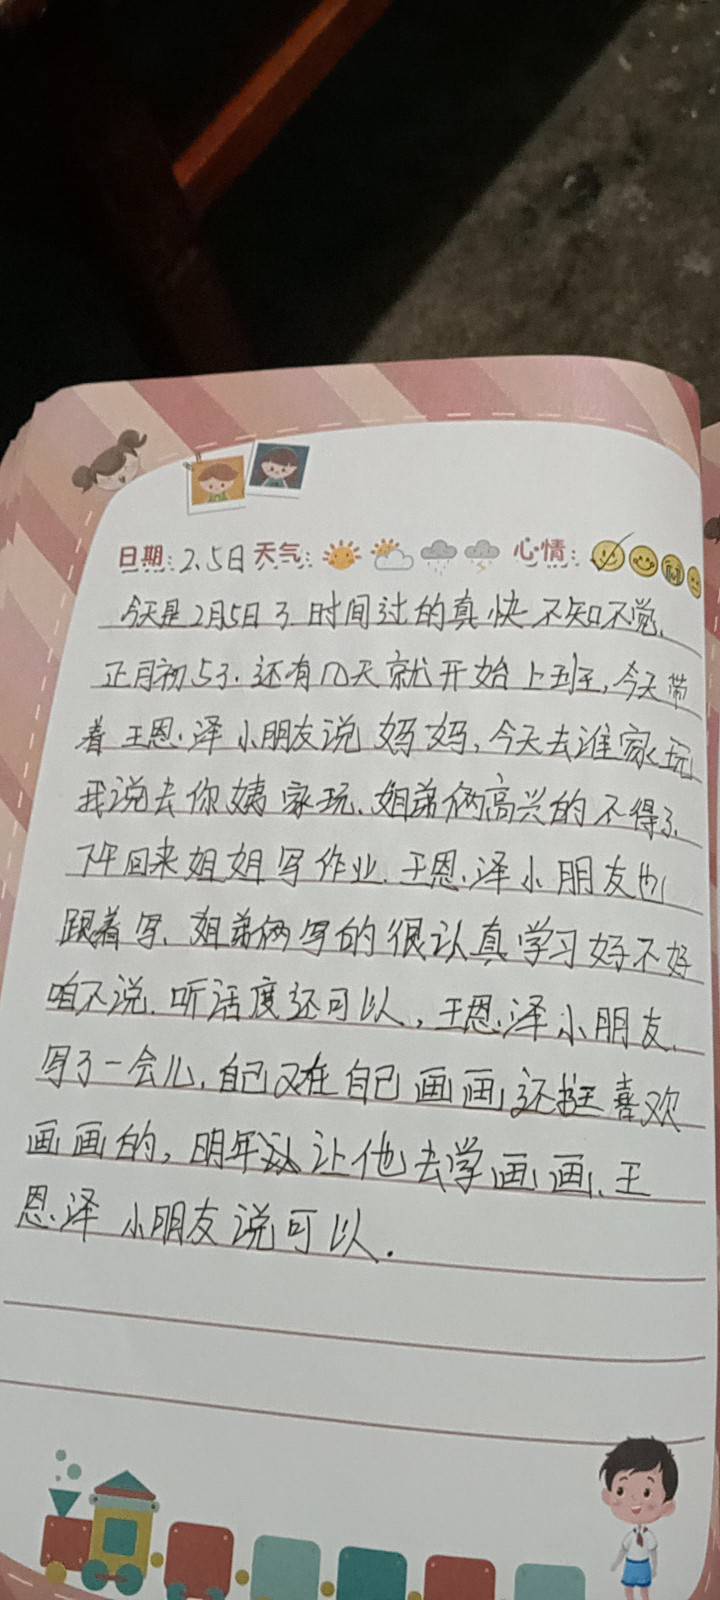 日期：2、5日 天气： 心情：
今天是2月5日了时间过的真快不知不觉、
正月初5了.还有几天就开始上班,今天带
着王恩泽小朋友说妈妈,今天去谁家玩
我说去你姨家玩、姐弟俩高兴的不得了、
下午回来姐姐写作业.王恩泽小朋友也
跟着写、姐弟俩写的很认真学习好不好
咱不说.听话度还可以,王恩泽小朋友、
写了一会儿,自己又在自己画画还挺喜欢
画画的,明年让他去学画画、王
恩泽小朋友说可以.